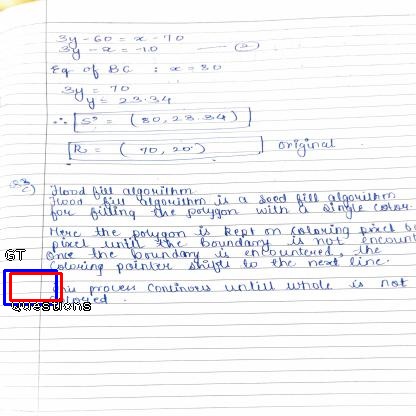 3y - 60 = x - 70
3y - x = -10 — (2)
Eq of BC : x = 80
3y = 70
y = 23.34
∴ [S' = (80, 23.34)]
[R = (70, 20)] original
Flood fill algorithm
Flood fill algorithm is a seed fill algorithm
for filling the polygon with a single color.
Here the polygon is kept on coloring pixel by
pixel until the boundary is not encount
Once the boundary is encountered, the
GT
coloring pointer shifts to the next line.
This process continous untill whole is not
colored.
Questions